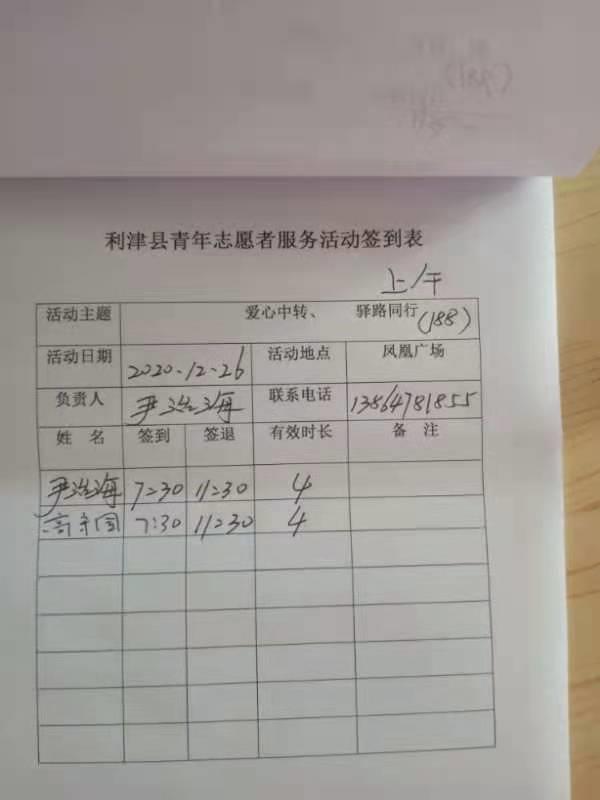 利津县青年志愿者服务活动签到表
上午
活动主题 爱心中转、 驿路同行(188)
活动日期 2020.12.26 活动地点 凤凰广场
负责人 尹浩海 联系电话 13864781855
姓 名 签到 签退 有效时长 备 注
尹浩海 7:30 11:30 4
高 7:30 11:30 4